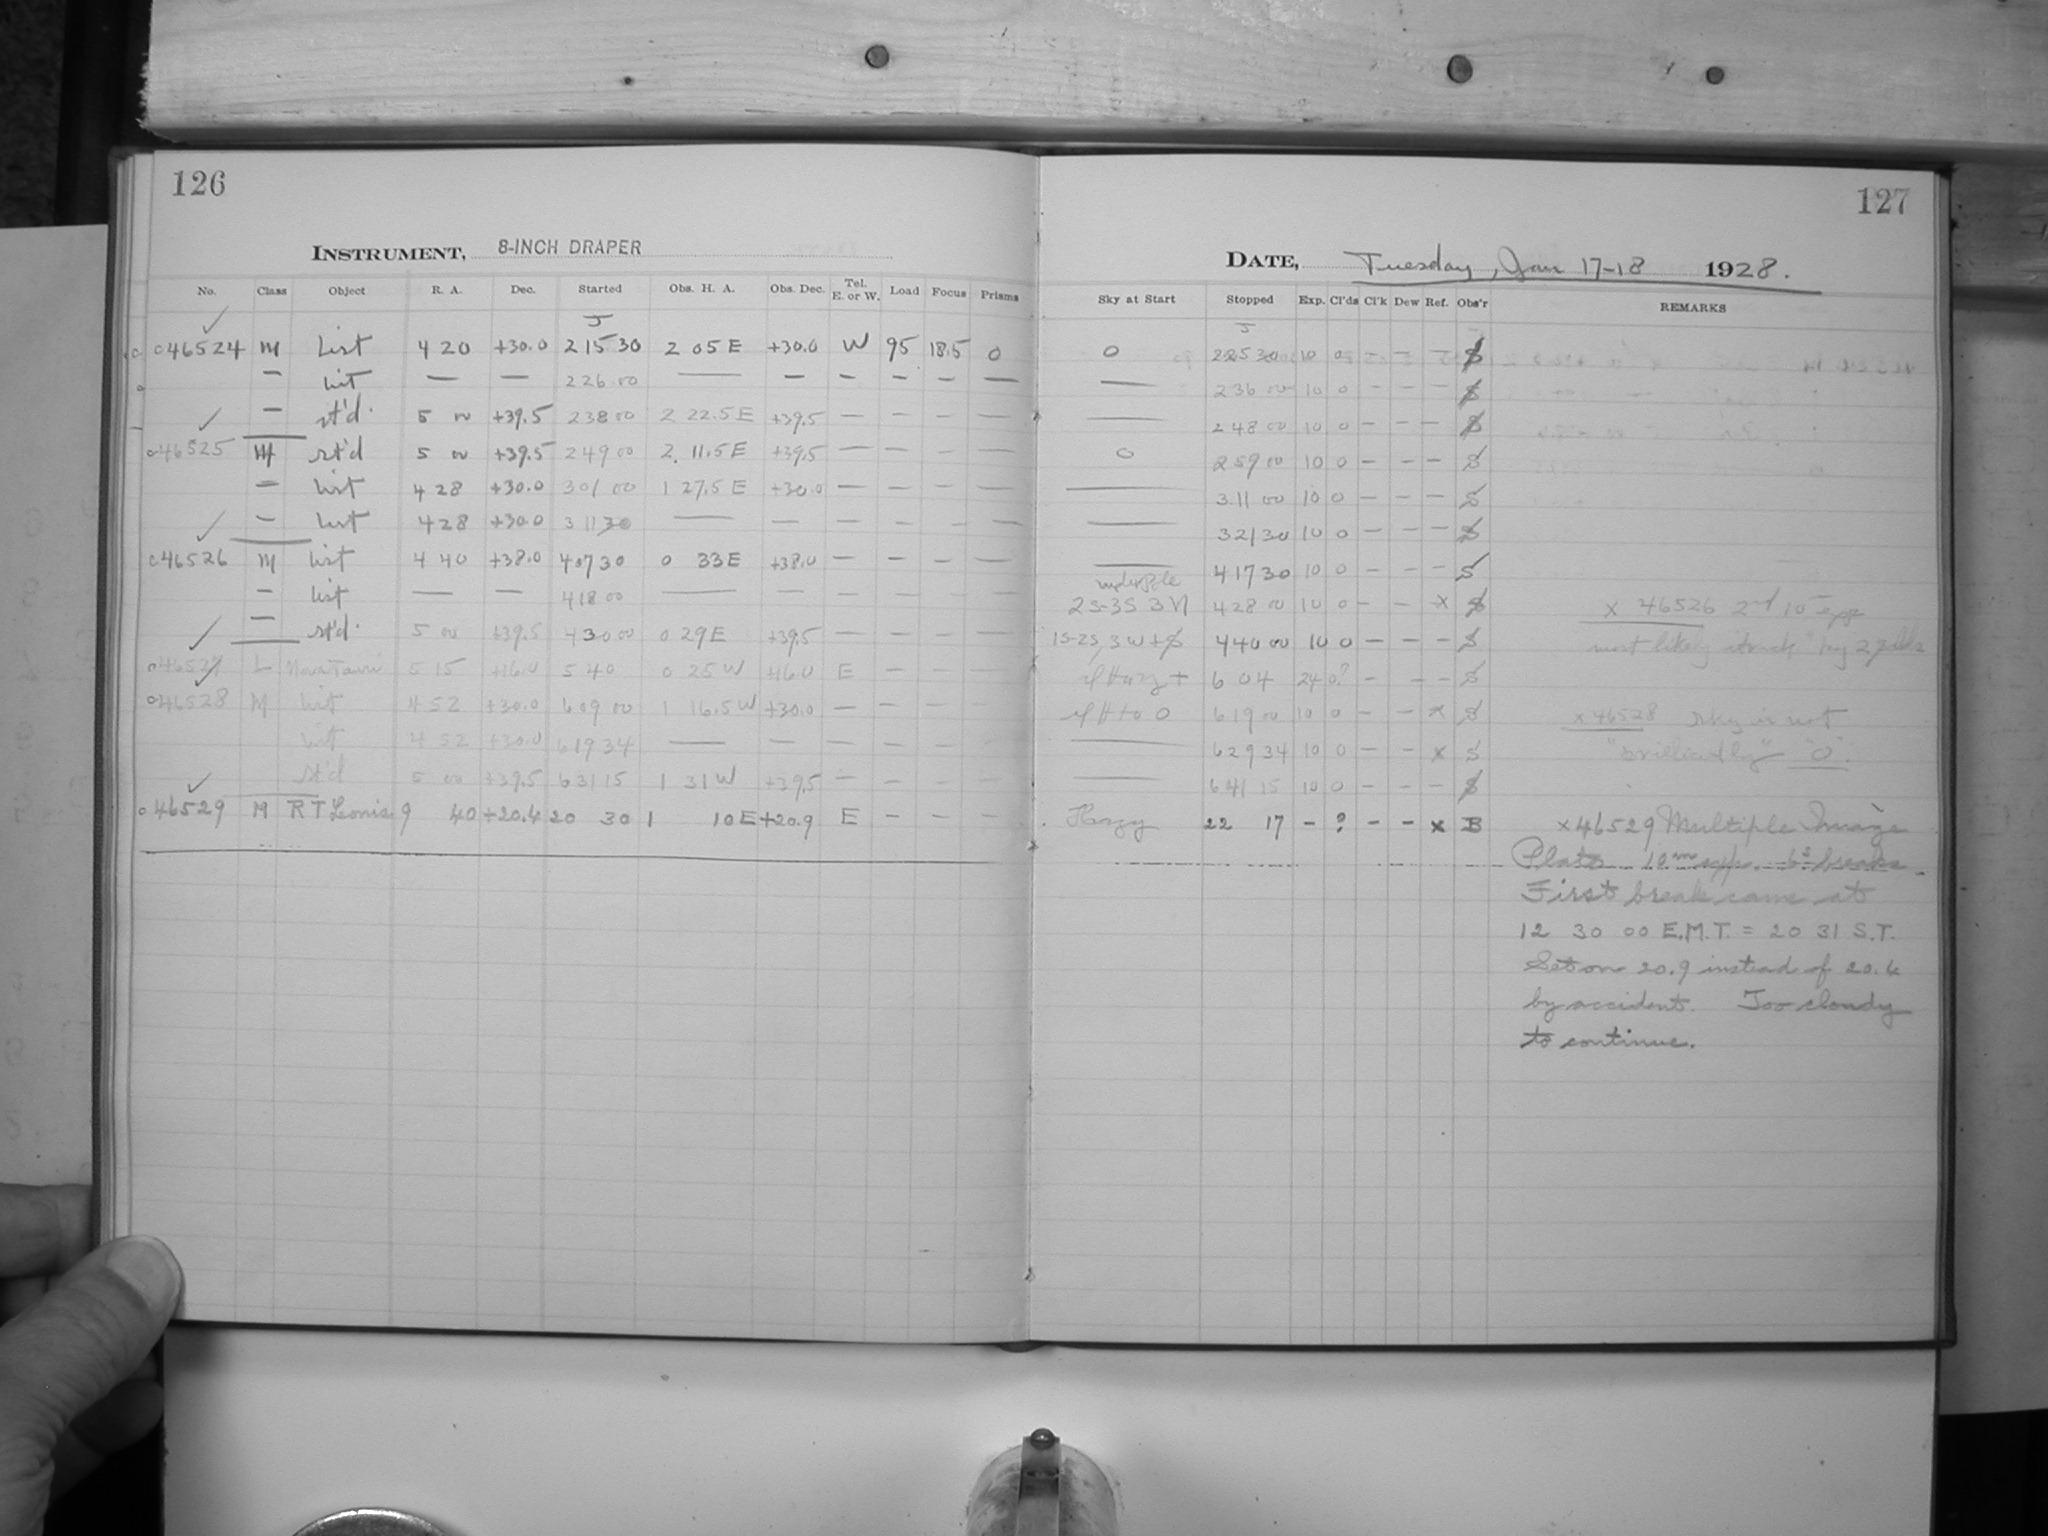 126
127
INSTRUMENT, 8-INCH DRAPER
DATE, Tuesday, Jan 17-18 1928.
No. Class Object R. A. Dec. Started Obs. H. A. Obs. Dec. Tel. E. or W. Load Focus Prisms Sky at Start Stopped Exp. Cl'ds Cl'k Dew Ref. Obs'r REMARKS
46524 M List 4 20 +30.0 2 15 30 2 05 E +30.0 W 95 18.5 0 0 2 25 30 10 0 — — — S
— list — — 2 26 00 — — — — — — — 2 36 00 10 0 — — — S
— st'd. 5 00 +39.5 2 38 00 2 22.5 E +39.5 — — — — — 2 48 00 10 0 — — — S
46525 M st'd 5 00 +39.5 2 49 00 2 11.5 E +39.5 — — — — 0 2 59 00 10 0 — — — S
— list 4 28 +30.0 3 01 00 1 27.5 E +30.0 — — — — — 3 11 00 10 0 — — — S
— list 4 28 +30.0 3 11 30 — — — — — — — 3 21 30 10 0 — — — S
46526 M list 4 40 +38.0 4 07 30 0 33 E +38.0 — — — — — 4 17 30 10 0 — — — S
— list — — 4 18 00 — — — — — — 2S-3S 3N 4 28 00 10 0 — — x S x 46526 2nd 10m exp
— st'd. 5 00 +39.5 4 30 00 0 29 E +39.5 — — — — 1S-2S, 3W+S 4 40 00 10 0 — — — S most likely struck by 2 clds
46527 L Nova Tauri 5 15 +16.0 5 40 0 25 W +16.0 E — — — 6 04 24 0? — — — S
46528 M list 4 52 +30.0 6 09 00 1 16.5 W +30.0 — — — — 6 19 00 10 0 — — x S x 46528 Sky is not
list 4 52 +30.0 6 19 34 — — — — — — — 6 29 34 10 0 — — x S "brilliantly" "0".
st'd 5 00 +39.5 6 31 15 1 31 W +39.5 — — — — — 6 41 15 10 0 — — — S
46529 M R T Leonis 9 40 +20.4 20 30 1 10 E +20.9 E — — — Hazy 22 17 — ? — — x B x 46529 Multiple Image
Plate 10m exp. 6s breaks.
First break came at
12 30 00 E.M.T. = 20 31 S.T.
Set on 20.9 instead of 20.4
by accident. Too cloudy
to continue.